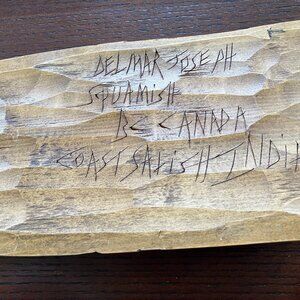 DELMAR JOSEPH
SQUAMISH
BC CANADA
COAST SALISH INDI